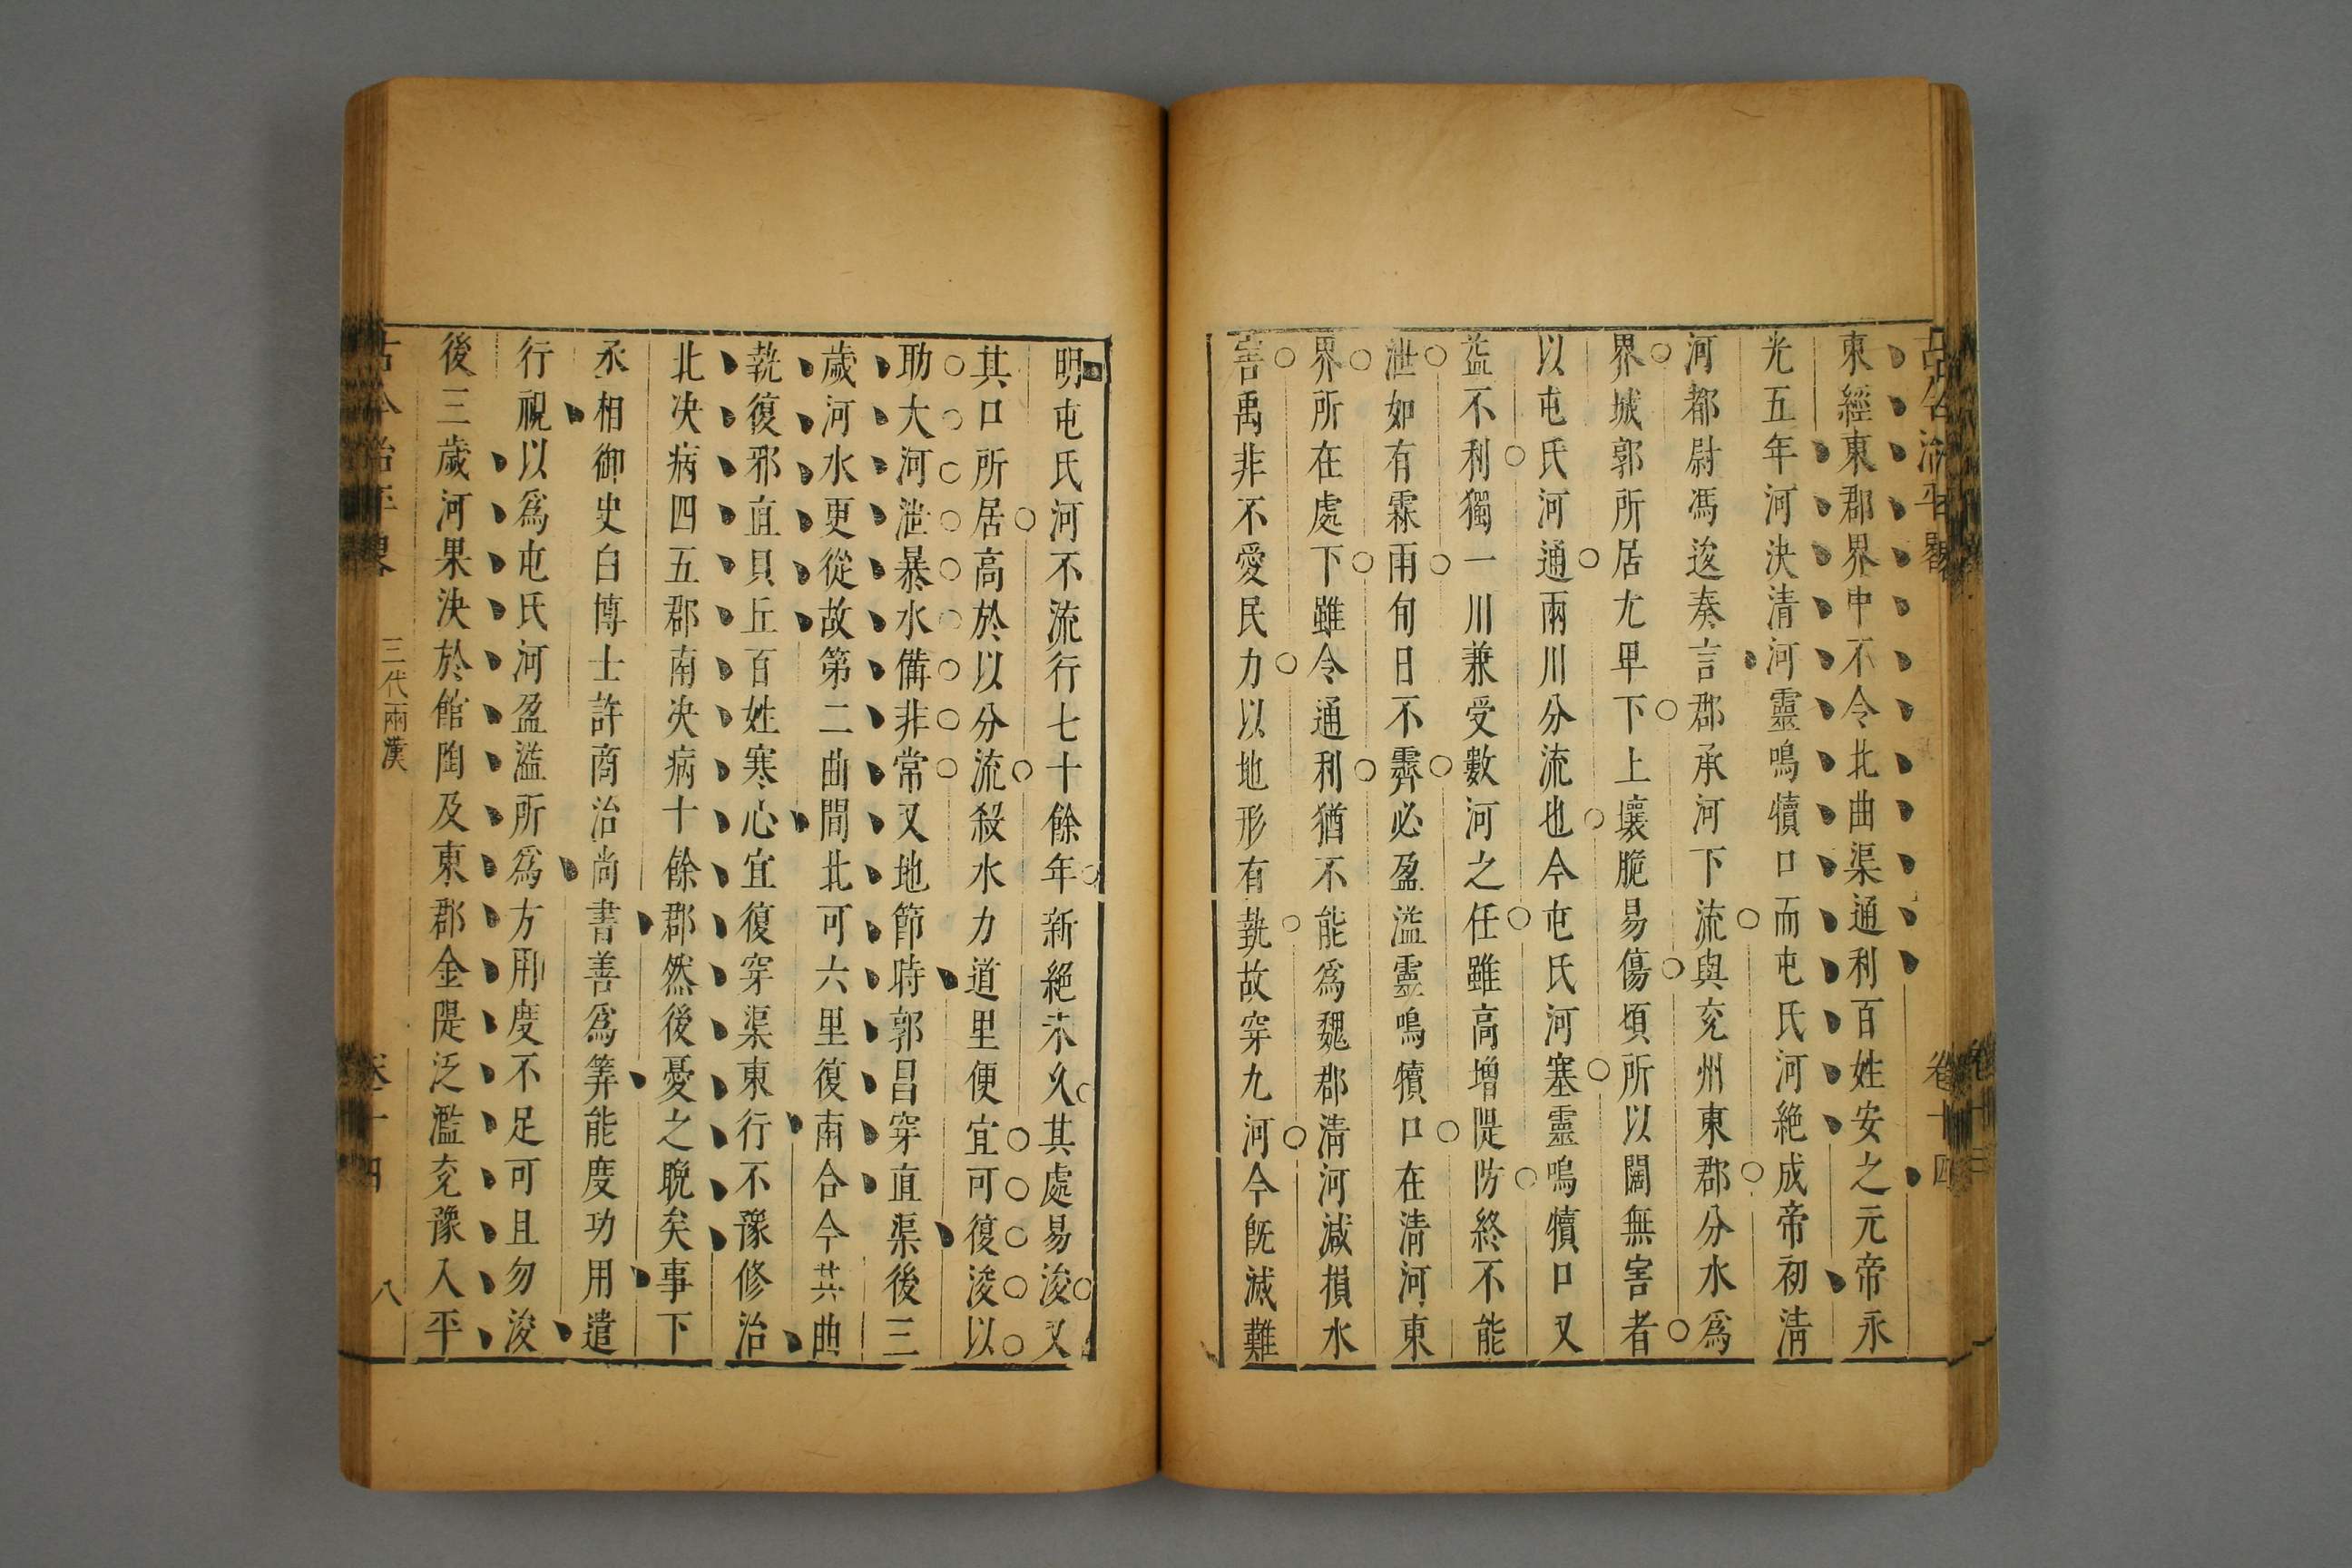 東經東郡界中不令北曲渠通利百姓安之元帝永
光五年河決清河靈鳴犢口而屯氏河絶成帝初清
河都尉馮逡奏言郡承河下流與兖州東郡分水爲
界城郭所居尤卑下土壤脆易傷頃所以闊無害者
以屯氏河通兩川分流也今屯氏河塞靈鳴犢口又
益不利獨一川兼受數河之任雖高增隄防終不能
泄如有霖雨旬日不霽必盈溢靈鳴犢口在清河東
界所在處下雖令通利猶不能爲魏郡清河減損水
害禹非不愛民力以地形有埶故穿九河今旣滅難
明屯氏河不流行七十餘年新絕未久其處易浚又
其口所居高於以分流殺水力道里便宜可復浚以
助大河泄暴水備非常又地節時郭昌穿直渠後三
歲河水更從故第二曲間北可六里復南合今其曲
埶復邪直貝丘百姓寒心宜復穿渠東行不豫修治
北决病四五郡南决病十餘郡然後憂之晚矣事下
丞相御史白博士許商治尚書善爲筭能度功用遣
行視以爲屯氏河盈溢所爲方用度不足可且勿浚
後三歲河果決於館陶及東郡金隄泛濫兖豫入平
三代兩漢
卷十四
八